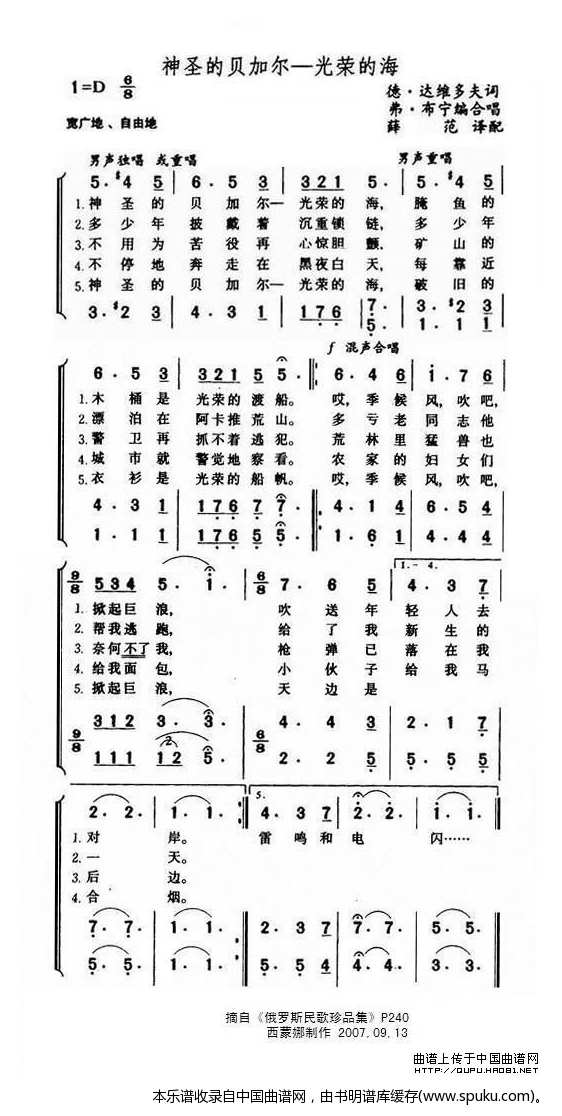 神圣的贝加尔—光荣的海
1=D 6/8
德·达维多夫词
弗·布宁编合唱
薛 范 译配
宽广地、自由地
男声独唱 或重唱 男声重唱
5·#4 5 | 6·5 3 | 321 5· | 5·#4 5
1.神圣的 贝加尔— 光荣的 海, 腌鱼的
2.多少年 披戴着 沉重锁 链, 多少年
3.不用为 苦役再 心惊胆 颤. 矿山的
4.不停地 奔走在 黑夜白 天, 每靠近
5.神圣的 贝加尔— 光荣的 海, 破旧的
3·#2 3 | 4·3 1 | 176 7· 5· | 3·#2 3
f 混声合唱
6·5 3 | 321 5 5· :‖: 6·4 6 | i·7 6
1.木桶是 光荣的渡船。 哎, 季候 风, 吹吧,
2.漂泊在 阿卡推荒山。 多亏老 同志他
3.警卫再 抓不着逃犯。 荒林里 猛兽也
4.城市就 警觉地察看。 农家的 妇女们
5.衣衫是 光荣的船帆。 哎, 季候 风, 吹吧,
4·3 1 | 176 7 7· :‖: 4·1 4 | 6·5 4
1·1 1 | 176 5 5· :‖: 1·6 1 | 4·4 4
1.-4.
9/8 534 5· 1· | 6/8 7·6 5 | 4·3 7
1.掀起巨 浪, 吹送年 轻人去
2.帮我逃 跑, 给了我 新生的
3.奈何不了我, 枪弹已 落在我
4.给我面 包, 小伙子 给我马
5.掀起巨 浪, 天边是
9/8 312 3· 3· | 6/8 4·4 3 | 2·1 7
111 12 5· | 2·2 5 | 5·5 5
5.
2· 2· | 1· 1· :‖ 4·3 7 | 2· 2· | i· i· ‖
1.对 岸。 雷鸣和 电 闪……
2.一 天。
3.后 边。
4.合 烟。
7· 7· | 1· 1· :‖ 2·3 7 | 7· 7· | 5· 5· ‖
5· 5· | 1· 1· :‖ 5·5 4 | 4· 4· | 3· 3· ‖
摘自《俄罗斯民歌珍品集》P240
西蒙娜制作 2007.09.13
曲谱上传于中国曲谱网
http://QUPU.HAO81.NET
本乐谱收录自中国曲谱网，由书明谱库缓存(www.spuku.com)。